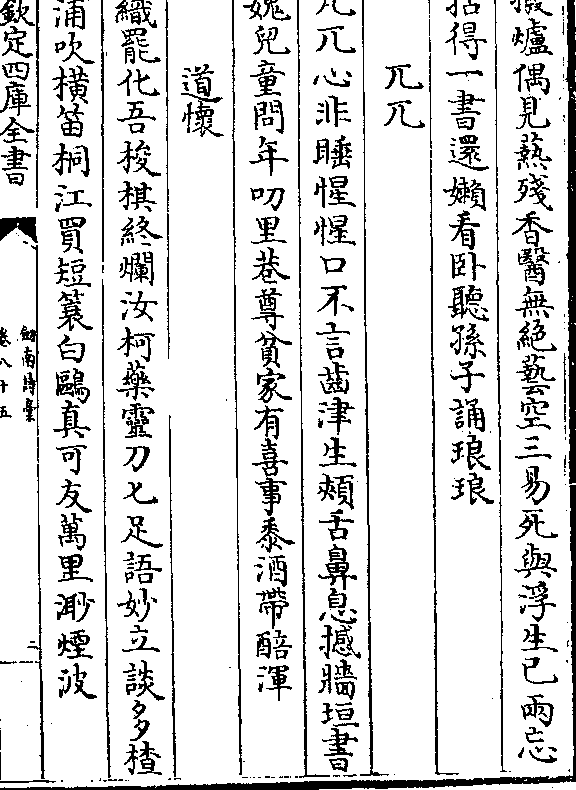 撥爐偶見爇殘香醫無絕藝空三易死與浮生已兩忘
拈得一書還嬾看卧聽孫子誦琅琅
兀兀
兀兀心非睡惺惺口不言齒津生頰舌鼻息撼牆垣書
媿兒童問年叨里巷尊貧家有喜事黍酒帶醅渾
道懷
織罷化吾梭棋終爛汝柯藥靈刀匕足語妙立談多楂
浦吹橫笛桐江買短蓑白鷗真可友萬里渺煙波
欽定四庫全書
劍南詩稾
卷八十五
二